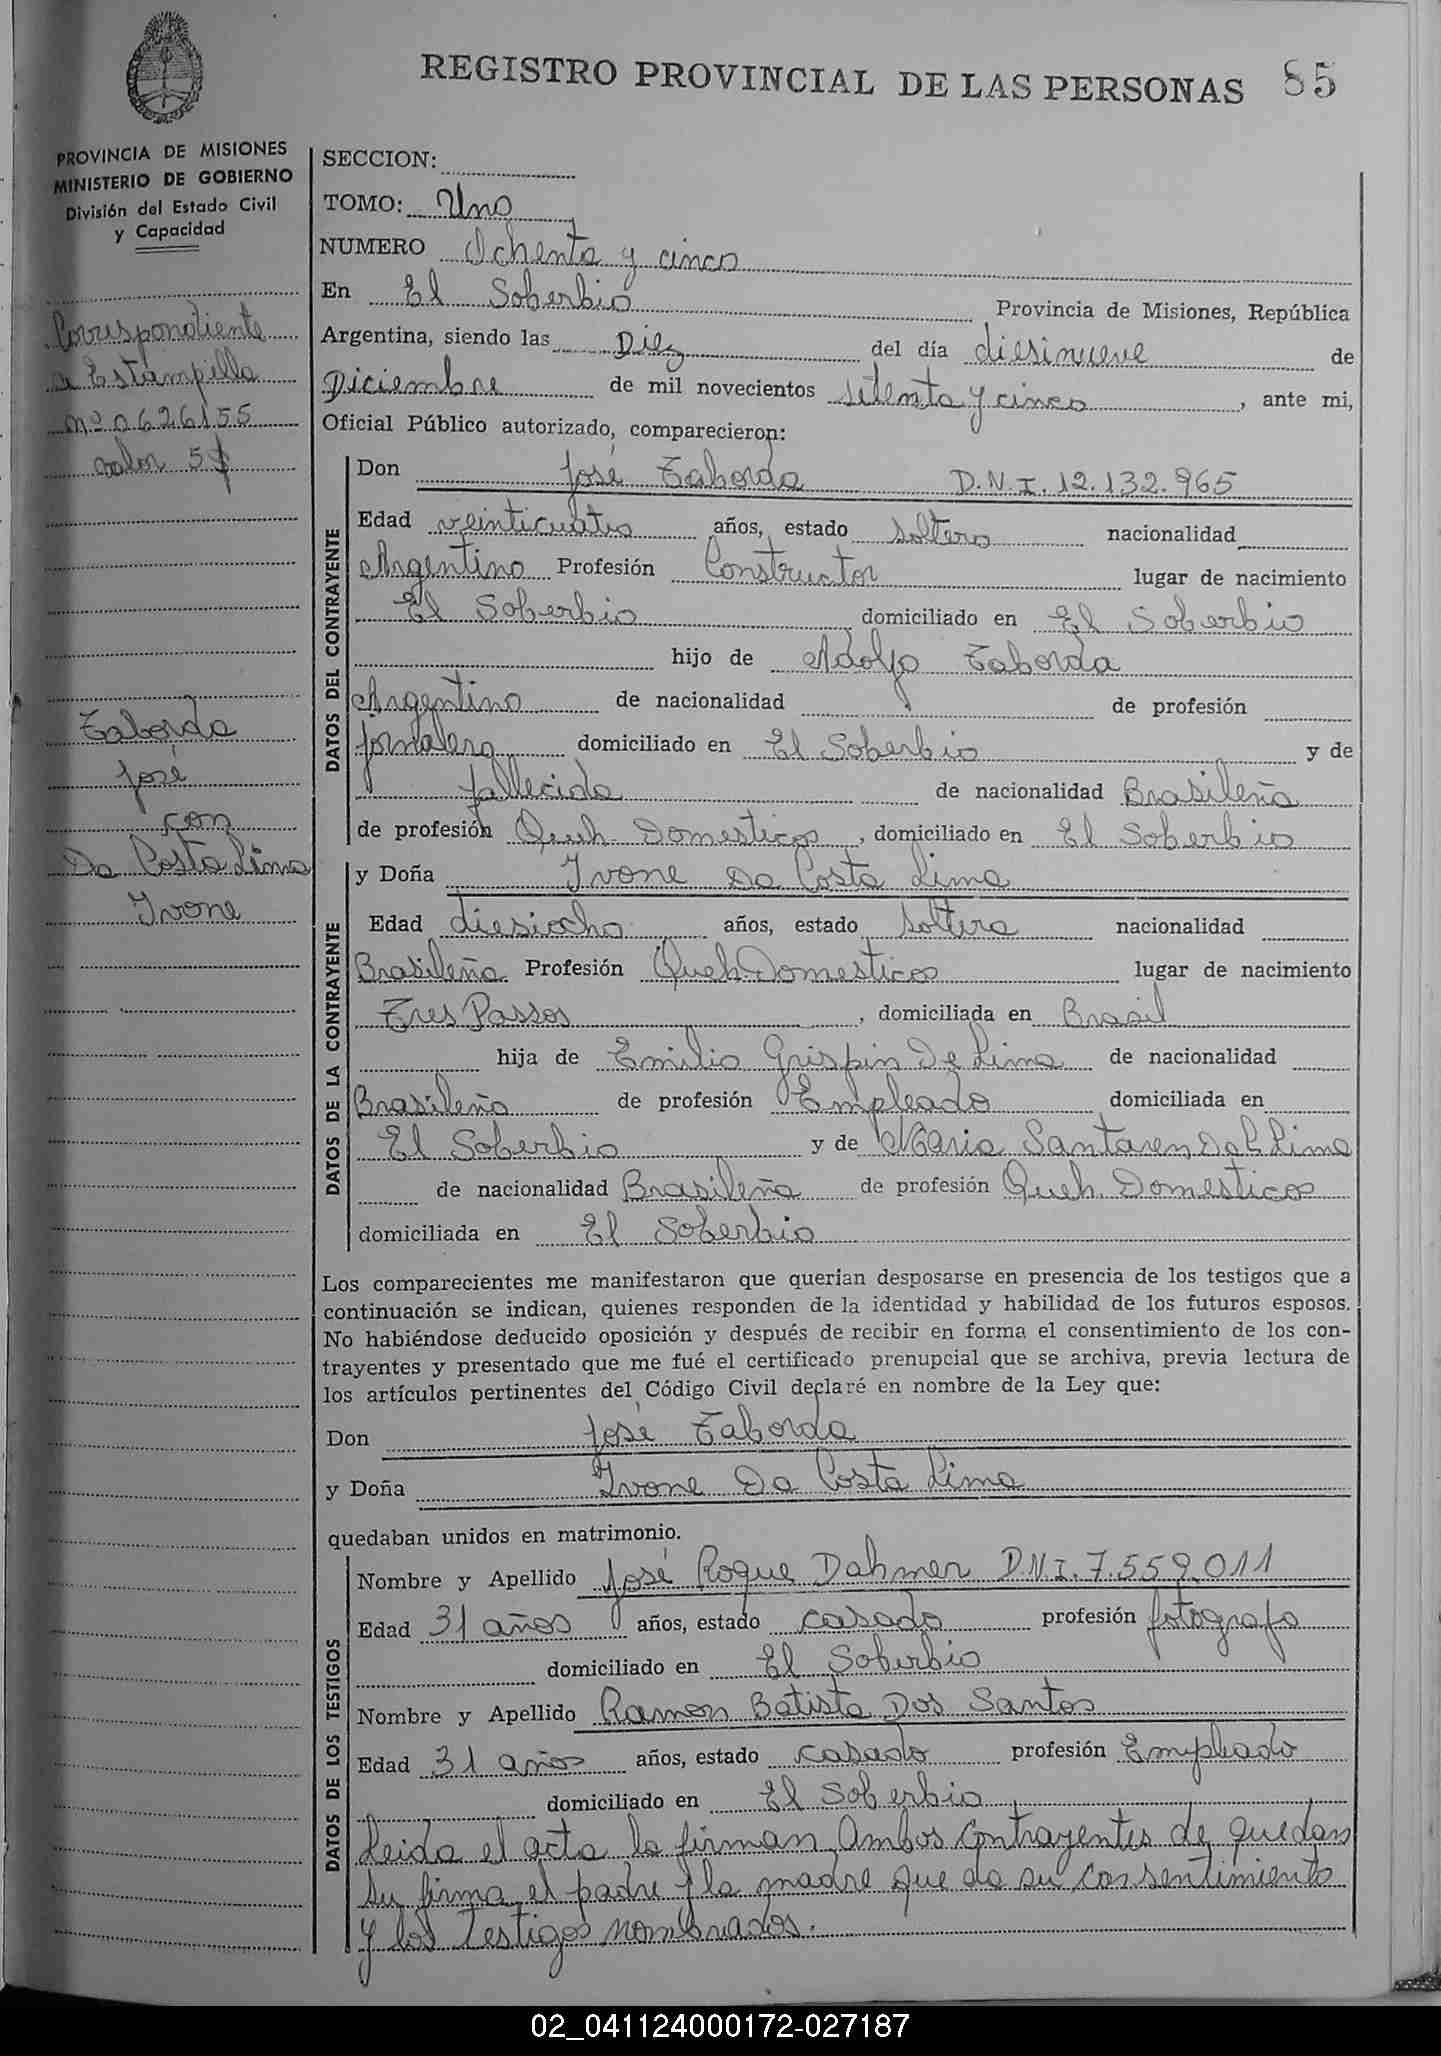 REGISTRO PROVINCIAL DE LAS PERSONAS 85
PROVINCIA DE MISIONES
MINISTERIO DE GOBIERNO
División del Estado Civil
y Capacidad
Correspondiente
a Estampilla
nº 0626155
valor 5$
Taborda
José
con
Da Costa Lima
Ivone
SECCION:
TOMO: Uno
NUMERO Ochenta y cinco
En El Soberbio Provincia de Misiones, República
Argentina, siendo las Diez del día diesinueve de
Diciembre de mil novecientos setenta y cinco, ante mi,
Oficial Público autorizado, comparecieron:
DATOS DEL CONTRAYENTE
Don José Taborda D.N.I. 12.132.965
Edad veinticuatro años, estado soltero nacionalidad
Argentino Profesión Constructor lugar de nacimiento
El Soberbio domiciliado en El Soberbio
hijo de Adolfo Taborda
Argentino de nacionalidad de profesión
jornalero domiciliado en El Soberbio y de
fallecida de nacionalidad Brasileña
de profesión Queh. Domesticos, domiciliado en El Soberbio
DATOS DE LA CONTRAYENTE
y Doña Ivone Da Costa Lima
Edad diesiocho años, estado soltera nacionalidad
Brasileña Profesión Queh. Domesticos lugar de nacimiento
Tres Passos, domiciliada en Brasil
hija de Emilio Grispin De Lima de nacionalidad
Brasileño de profesión Empleado domiciliada en
El Soberbio y de Maria Santaren Lima
de nacionalidad Brasileña de profesión Queh. Domesticos
domiciliada en El Soberbio
Los comparecientes me manifestaron que querían desposarse en presencia de los testigos que a
continuación se indican, quienes responden de la identidad y habilidad de los futuros esposos.
No habiéndose deducido oposición y después de recibir en forma el consentimiento de los con-
trayentes y presentado que me fué el certificado prenupcial que se archiva, previa lectura de
los artículos pertinentes del Código Civil declaré en nombre de la Ley que:
Don José Taborda
y Doña Ivone Da Costa Lima
quedaban unidos en matrimonio.
DATOS DE LOS TESTIGOS
Nombre y Apellido José Roque Dahmer D.N.I. 7.559.011
Edad 31 años años, estado casado profesión fotografo
domiciliado en El Soberbio
Nombre y Apellido Ramon Batista Dos Santos
Edad 31 años años, estado casado profesión Empleado
domiciliado en El Soberbio
Leida el acta la firman ambos contrayentes de quedan
su firma el padre y la madre que da su consentimiento
y los testigos nombrados.
02_041124000172-027187